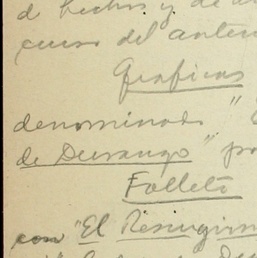 d hechos y de
curso del
Graficas
denominado "
de Durango" po
Folleto
con "El Resurgim